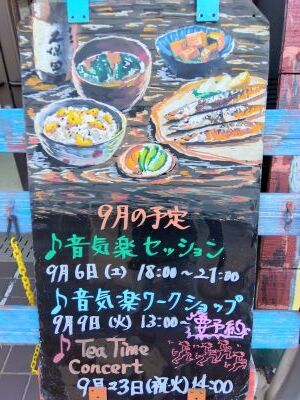 9月の予定
♪音気楽セッション
9月6日(土) 18:00〜21:00
♪音気楽ワークショップ
9月9日(火) 13:00〜 要予約
♪Tea Time
Concert
9月23日(祝火) 14:00